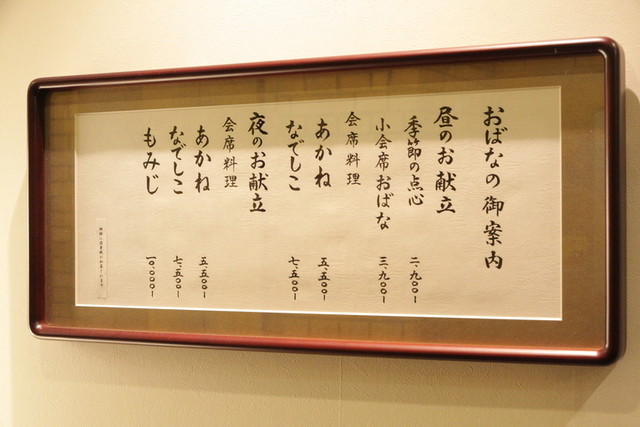 おばなの御案内
昼のお献立
季節の点心 二、九〇〇ー
小会席おばな 三、九〇〇ー
会席料理
あかね 五、五〇〇ー
なでしこ 七、五〇〇ー
夜のお献立
会席料理
あかね 五、五〇〇ー
なでしこ 七、五〇〇ー
もみじ 一〇、〇〇〇ー